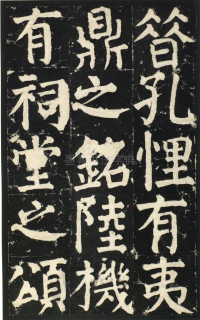 昝孔悝有夷
鼎之銘陸機
有祠堂之頌